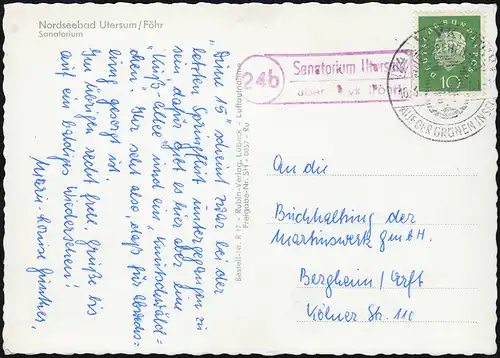 Nordseebad Utersum/Föhr
Sanatorium
"Düne 15" scheint zwar bei der
letzten Springflut untergegangen zu
sein, dafür gibt es hier aber eine
"Kuß-Allee" und ein "Knutschwäld-
chen". Ihr seht also, daß für Abwechs-
lung gesorgt ist.
Im übrigen recht frdl. Grüße bis
auf ein baldiges Wiedersehen!
Marie-Louise
Bestell-Nr. R 17 - Rubin-Verlag, Lübeck - Luftaufnahme
Freigabe-Nr. SH - 0057 - Rv
24b
Sanatorium Utersum
über Wyk (Föhr)
DEUTSCHE BUNDESPOST
10
AUF DER GRÜNEN INSEL
An die
Buchhaltung der
Martinswerk GmbH.
Bergheim/Erft
Kölner Str. 110